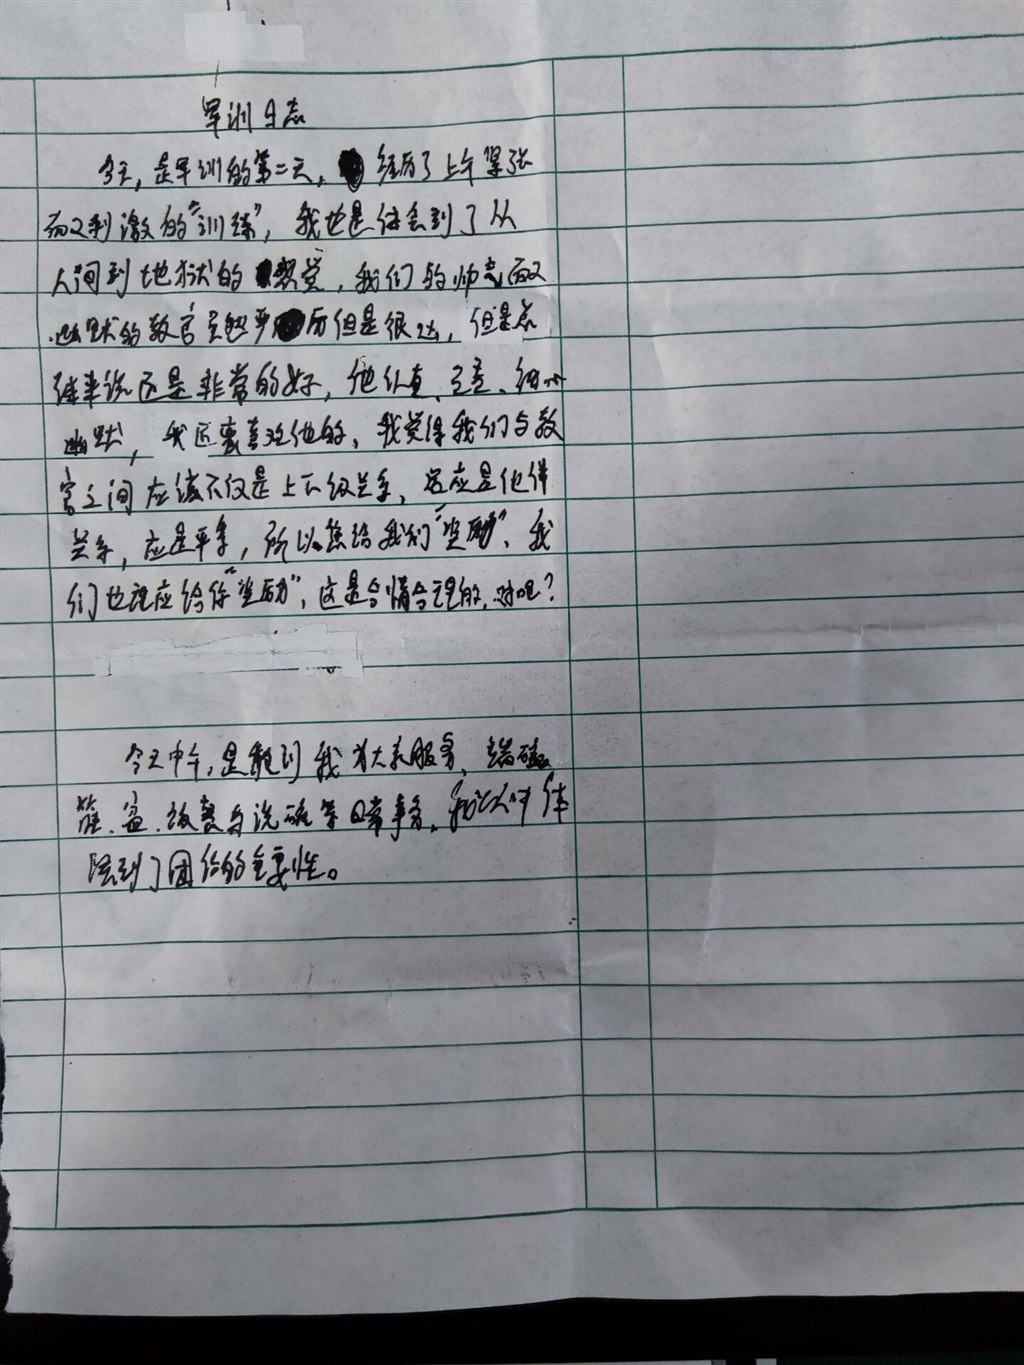 军训日志
今天,是军训的第二天,经历了上午紧张
而又刺激的“训练”,我也是体会到了从
人间到地狱的感觉,我们的帅气而又
幽默的教官虽然严厉但是很,但是总
体来说还是非常的好,他认真、负责、细心
幽默,我还蛮喜欢他的、我觉得我们与教
官之间应该不仅是上下级关系,应是伙伴
关系,应是平等,所以您给我们“奖励”、我
们也理应给你“奖励”,这是合情合理的,对吧?
今天中午,是轮到我为大家服务、端
、盛、收餐与洗碗等日常事务,我体
会到了团结的重要性。